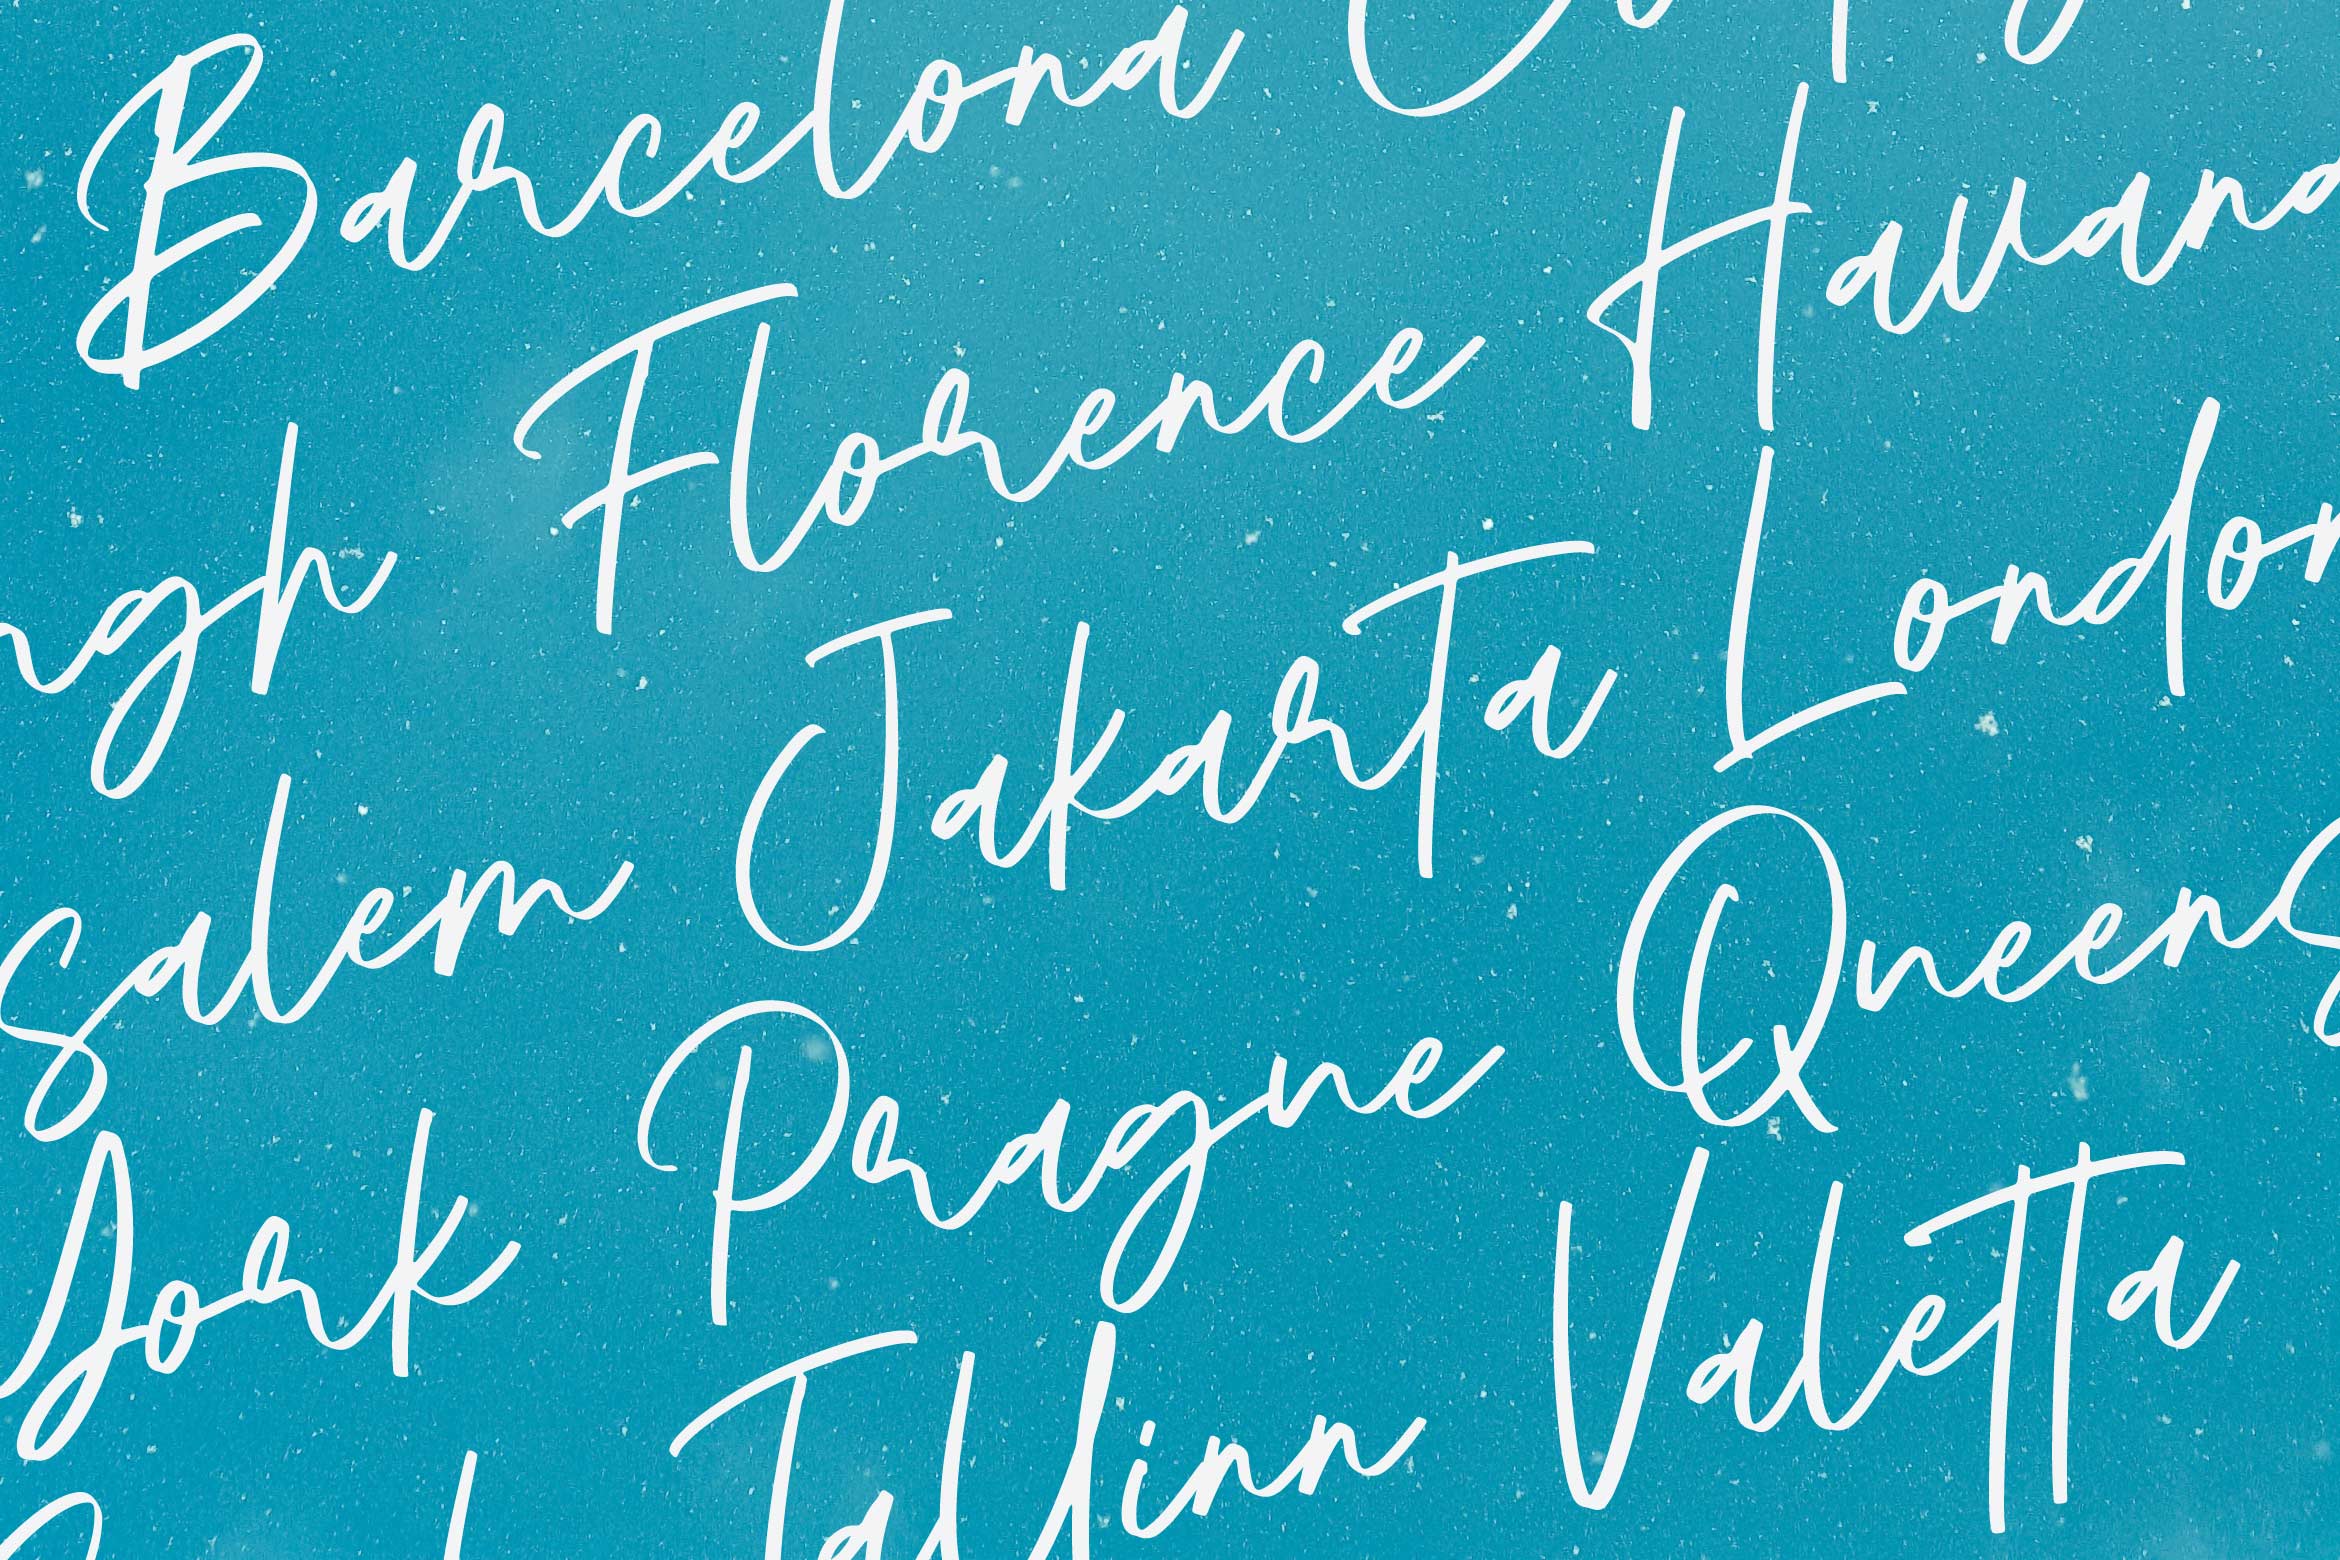 Barcelona
Florence Havana
ngh Jakarta London
salem Prague Queens
York Tallinn Valetta